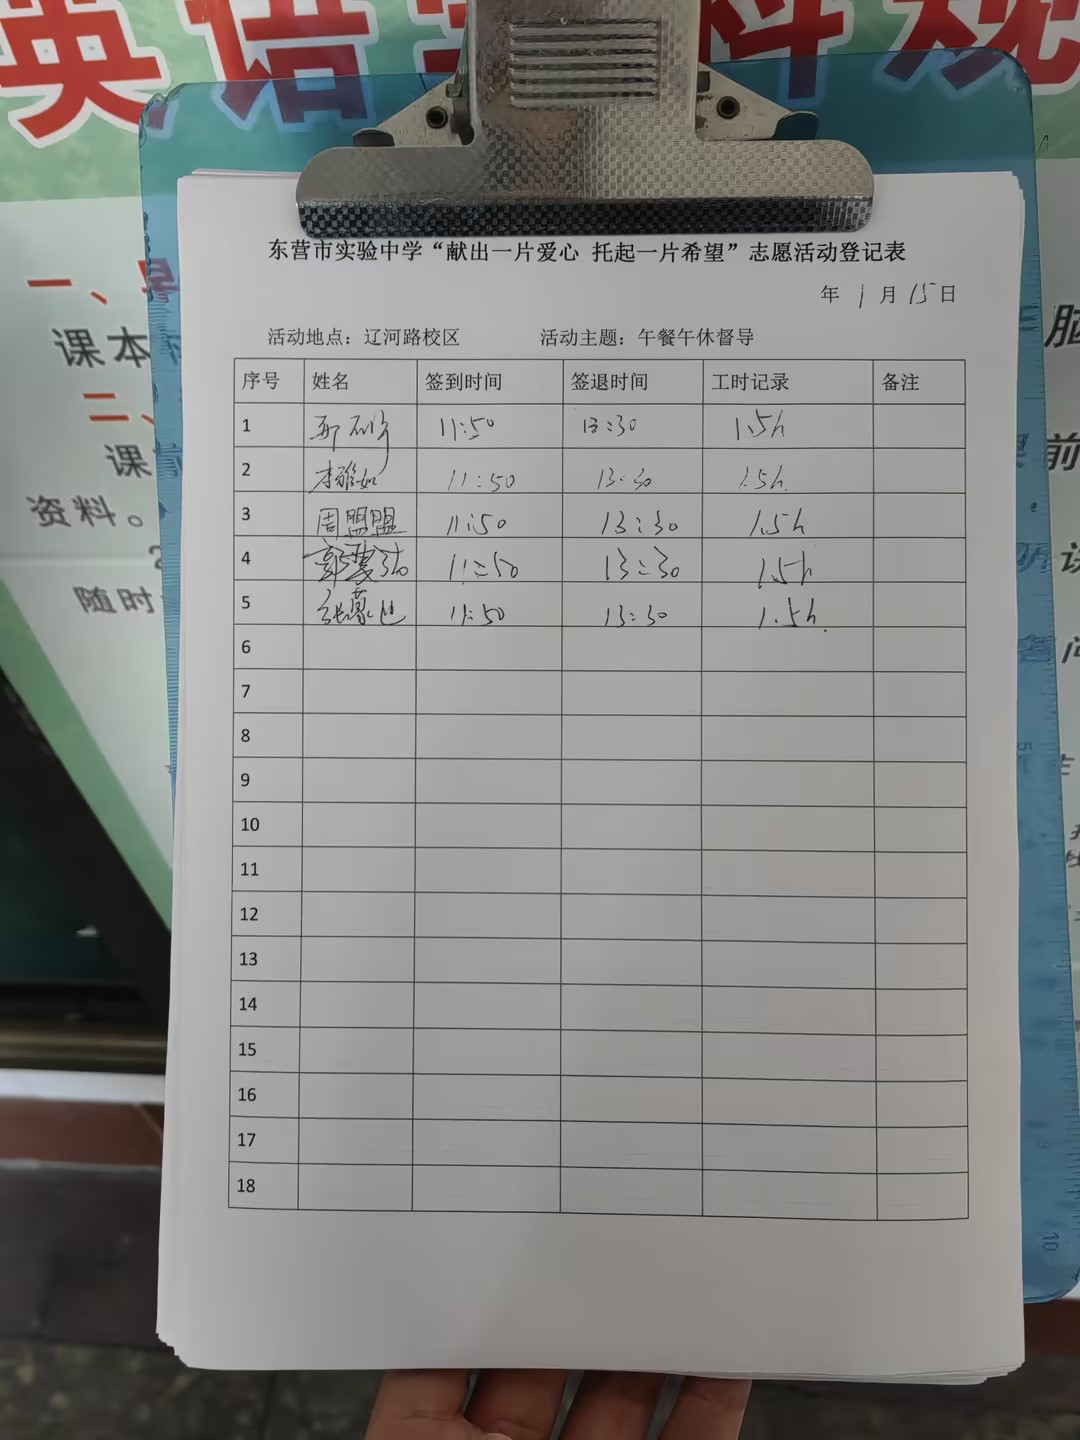 英语学科规
一、早
课本
二、
课前
资料。
随时
东营市实验中学“献出一片爱心 托起一片希望”志愿活动登记表
年 1 月 15 日
活动地点：辽河路校区 活动主题：午餐午休督导
序号 姓名 签到时间 签退时间 工时记录 备注
1 11:50 13:30 1.5h
2 李雅如 11:50 13:30 1.5h
3 周盟盟 11:50 13:30 1.5h
4 11:50 13:30 1.5h
5 11:50 13:30 1.5h.
6
7
8
9
10
11
12
13
14
15
16
17
18
脑
前
问
10